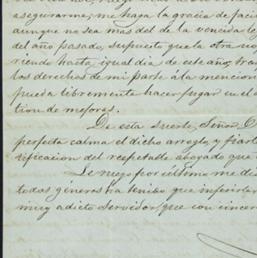 asegurarme, me haga la gracia de faci
aunque no sea mas del de la vencida le
del año pasado, supuesto que la otra no
riendo hasta igual dia de este año, tras
los derechos de mi parte á la mencion
pueda libremente hacer pagar en el a
tion de mejores.
De esta suerte, Señor C
perfecta calma el dicho arreglo, y
tificacion del respetable abogado que
Le ruego por último me di
todas generos ha tenido que
muy adicto servidor, que con sincer